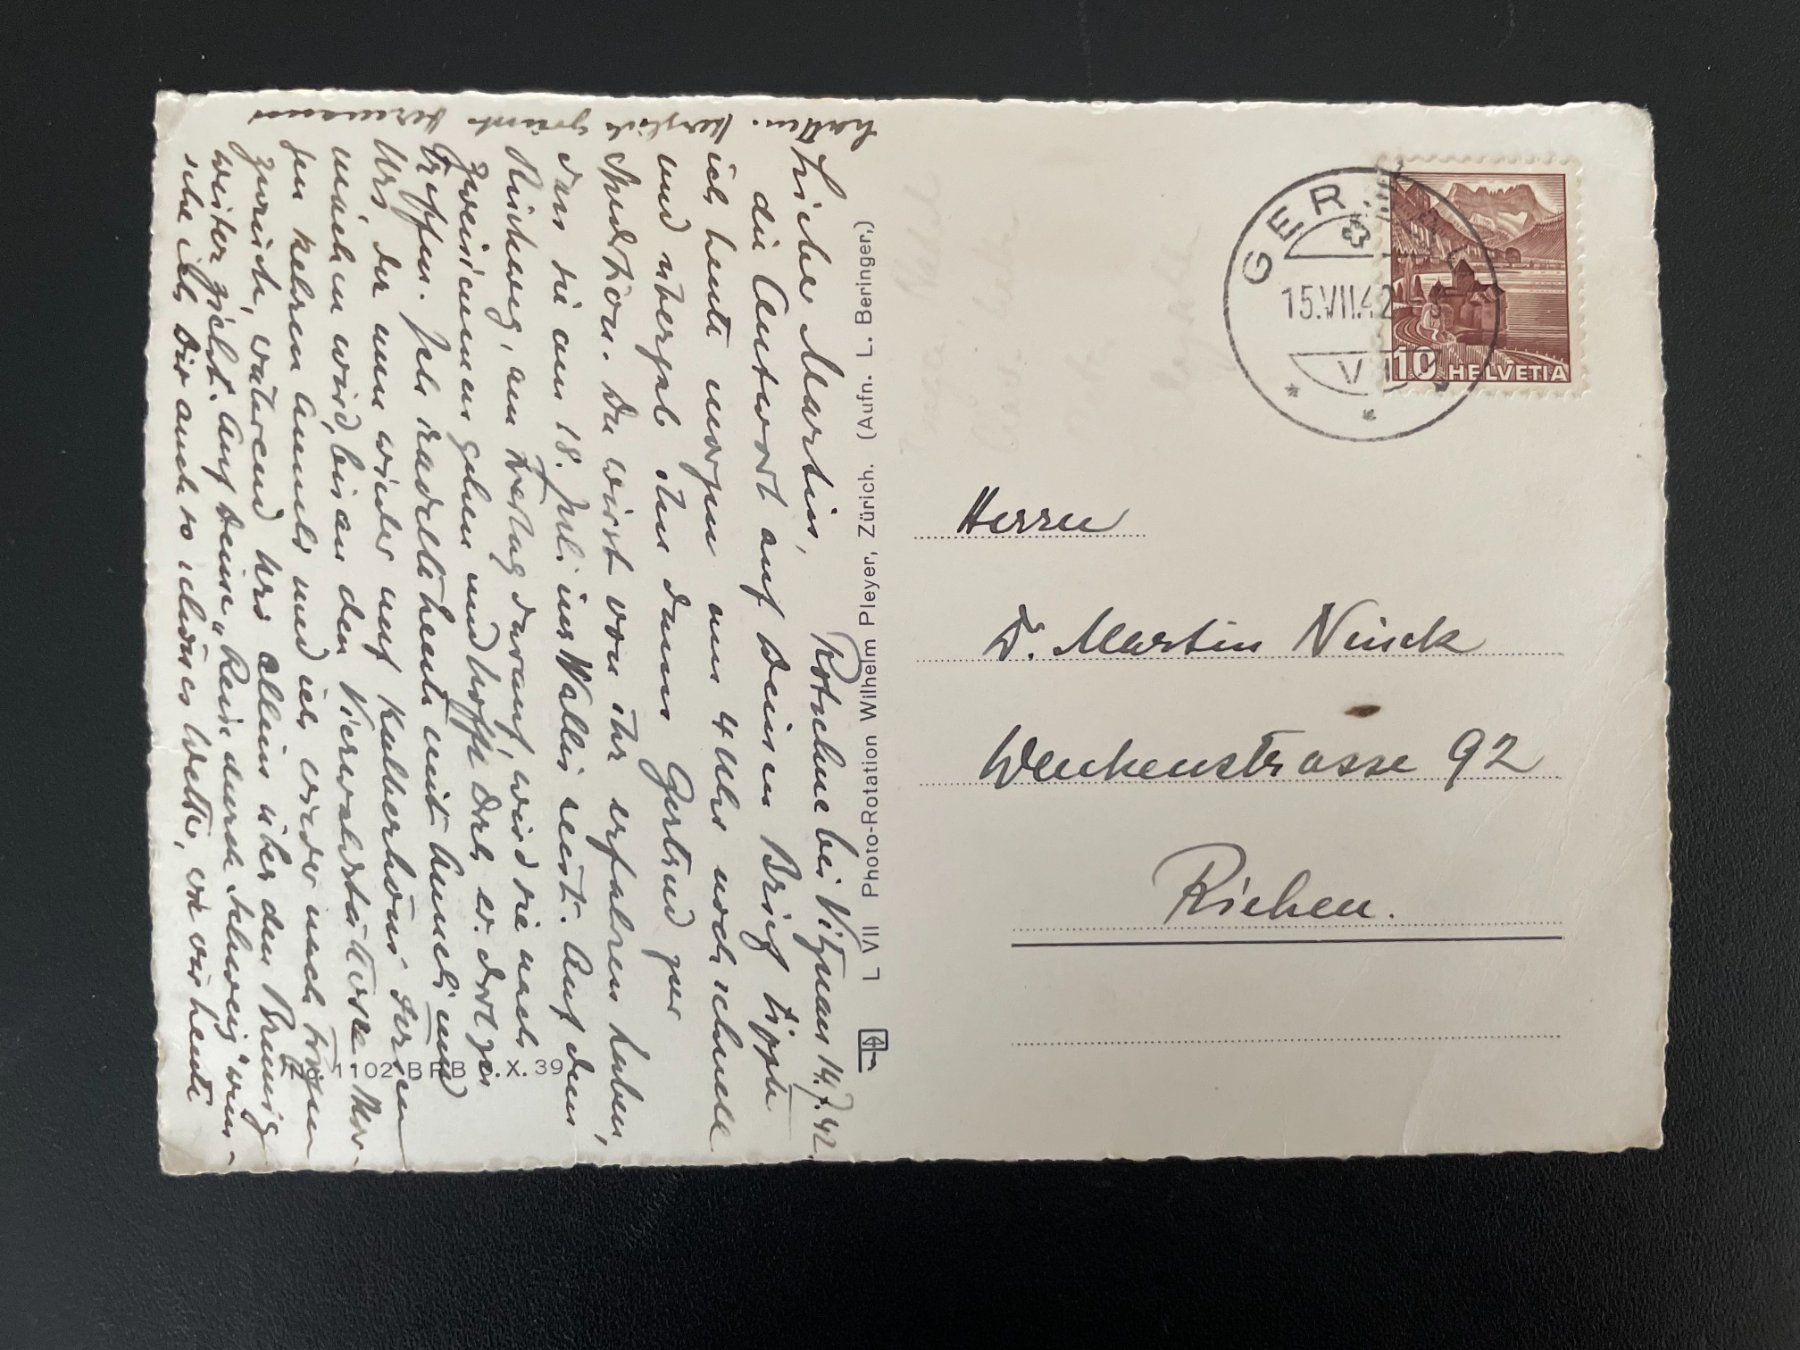 Rotschue bei Vitznau 14.7.42.
Lieber Martin,
die Antwort auf Deinen Brief tippte
ich heute morgen um 4 Uhr noch schnell
und übergab ihn dann Gertrud zur
Spedition. Du wirst von ihr erfahren haben,
dass sie am 18. Juli ins Wallis reist. Auf dem
Rückweg, am Tag darauf, wird sie nach
gehen und hoffe Dich ev. dort zu
treffen. Ich radelte heute mit Anneli und
Urs, der nun wieder auf dessen
machen wird, bis an den Vierwaldstättersee. Mor-
gen kehren Anneli und ich wieder nach
zurück, während Urs allein über den Brünig
weiter zieht. Auf Deine „Reise durch Schweig" wün-
sche ich Dir auch so schönes Wetter, wie wir heute
hatten. Herzlich grüsst Hermann
L VII Photo-Rotation Wilhelm Pleyer, Zürich. (Aufn. L. Beringer.)
1102 BRB .X.39
GER
15.VII.42
10 HELVETIA
Herrn
Dr. Martin Ninck
Wenkenstrasse 92
Riehen.